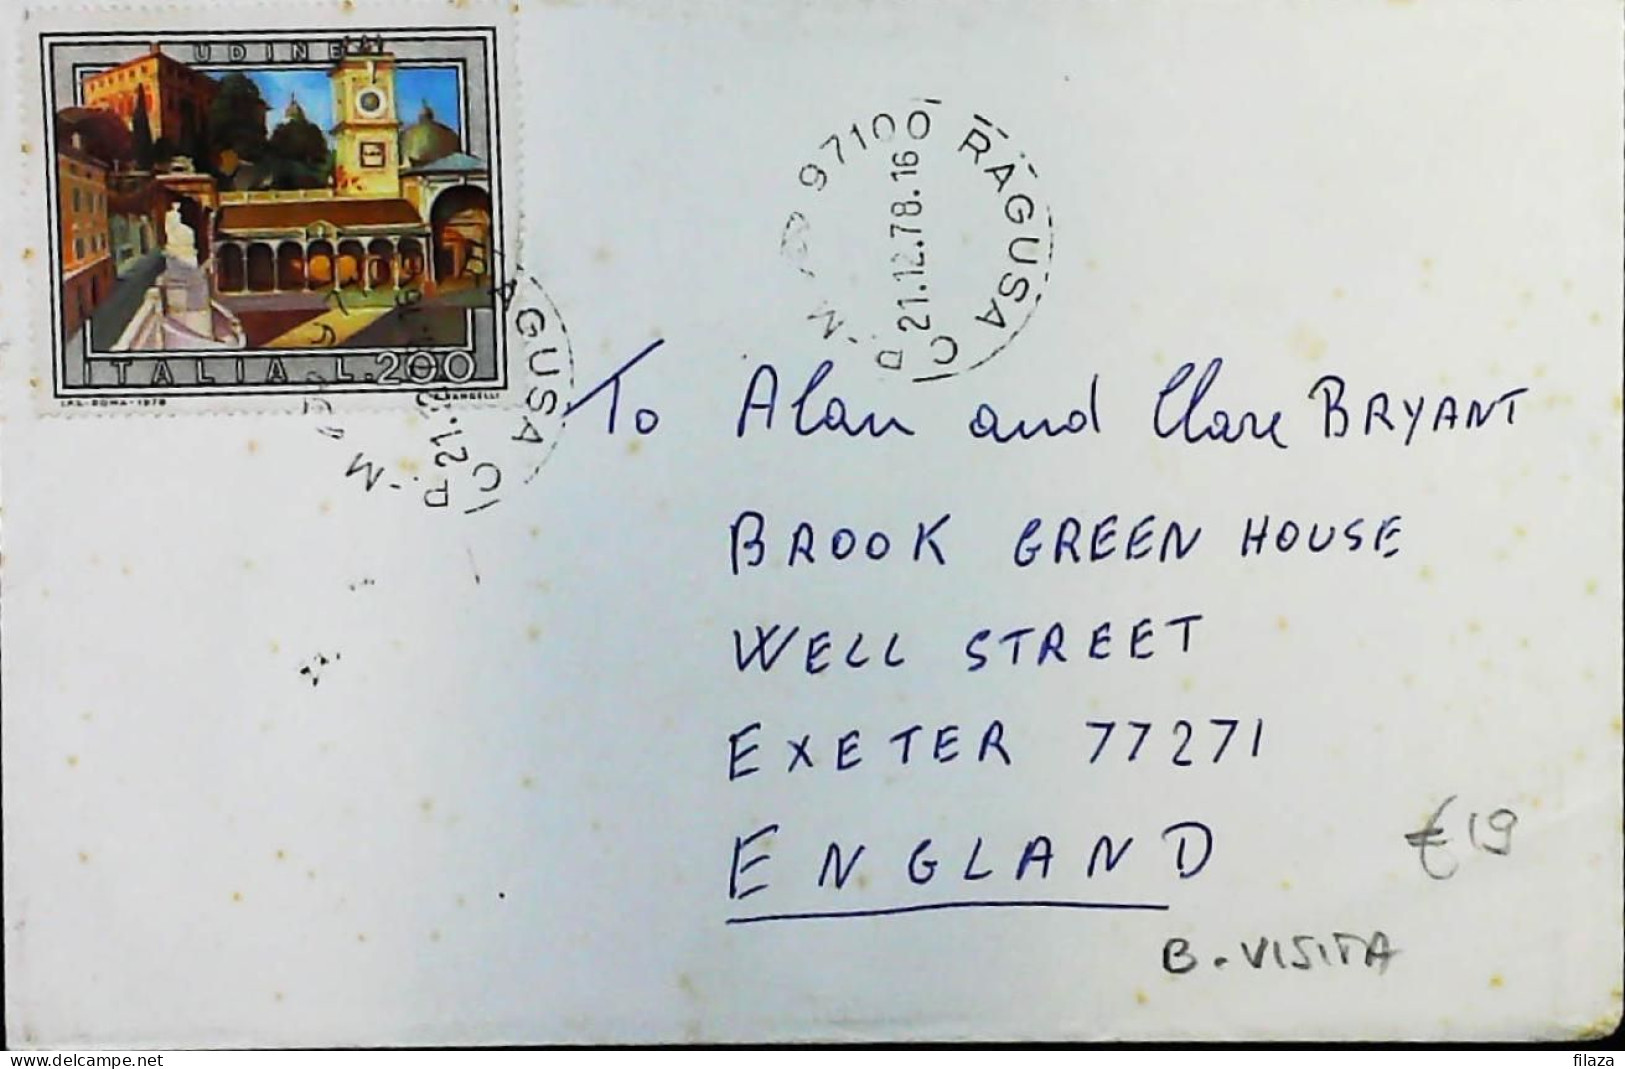 UDINE
ITALIA L.200
I.P.S.-ROMA-1978
97100 RAGUSA C
21.12.78.16
To Alan and Clare BRYANT
BROOK GREEN HOUSE
WELL STREET
EXETER 77271
ENGLAND
€19
B. VISITA
delcampe.net
filaza